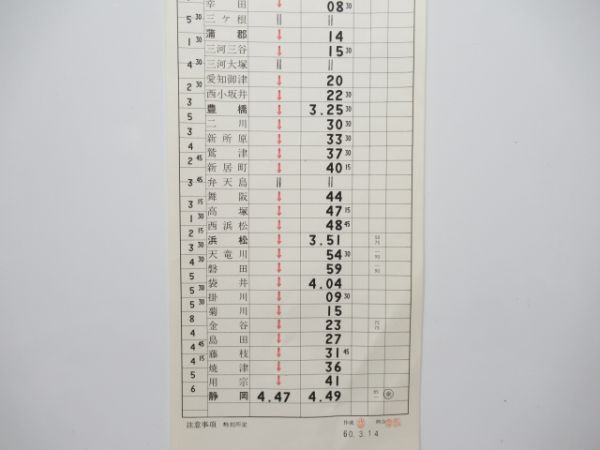 幸田 ↓ 08 30
5 30
三ケ根 || ||
蒲郡 ↓ 14
1 30
三河三谷 ↓ 15 30
4 30
三河大塚 || ||
愛知御津 ↓ 20
2 30
西小坂井 ↓ 22 30
3
豊橋 ↓ 3.25 30
5
二川 ↓ 30 30
3
新所原 ↓ 33 30
4
鷲津 ↓ 37 30
2 45
新居町 ↓ 40 15
弁天島 || ||
3 45
舞阪 ↓ 44
3 15
高塚 ↓ 47 15
1 30
西浜松 ↓ 48 45
2 15
浜松 ↓ 3.51
3 30
天竜川 ↓ 54 30
4 30
磐田 ↓ 59
5
袋井 ↓ 4.04
5 30
掛川 ↓ 09 30
5 30
菊川 ↓ 15
8
金谷 ↓ 23
4
島田 ↓ 27
4 45
藤枝 ↓ 31 45
4 15
焼津 ↓ 36
5
用宗 ↓ 41
6
静岡 4.47 4.49
注意事項 時刻所定
作成
60.3.14